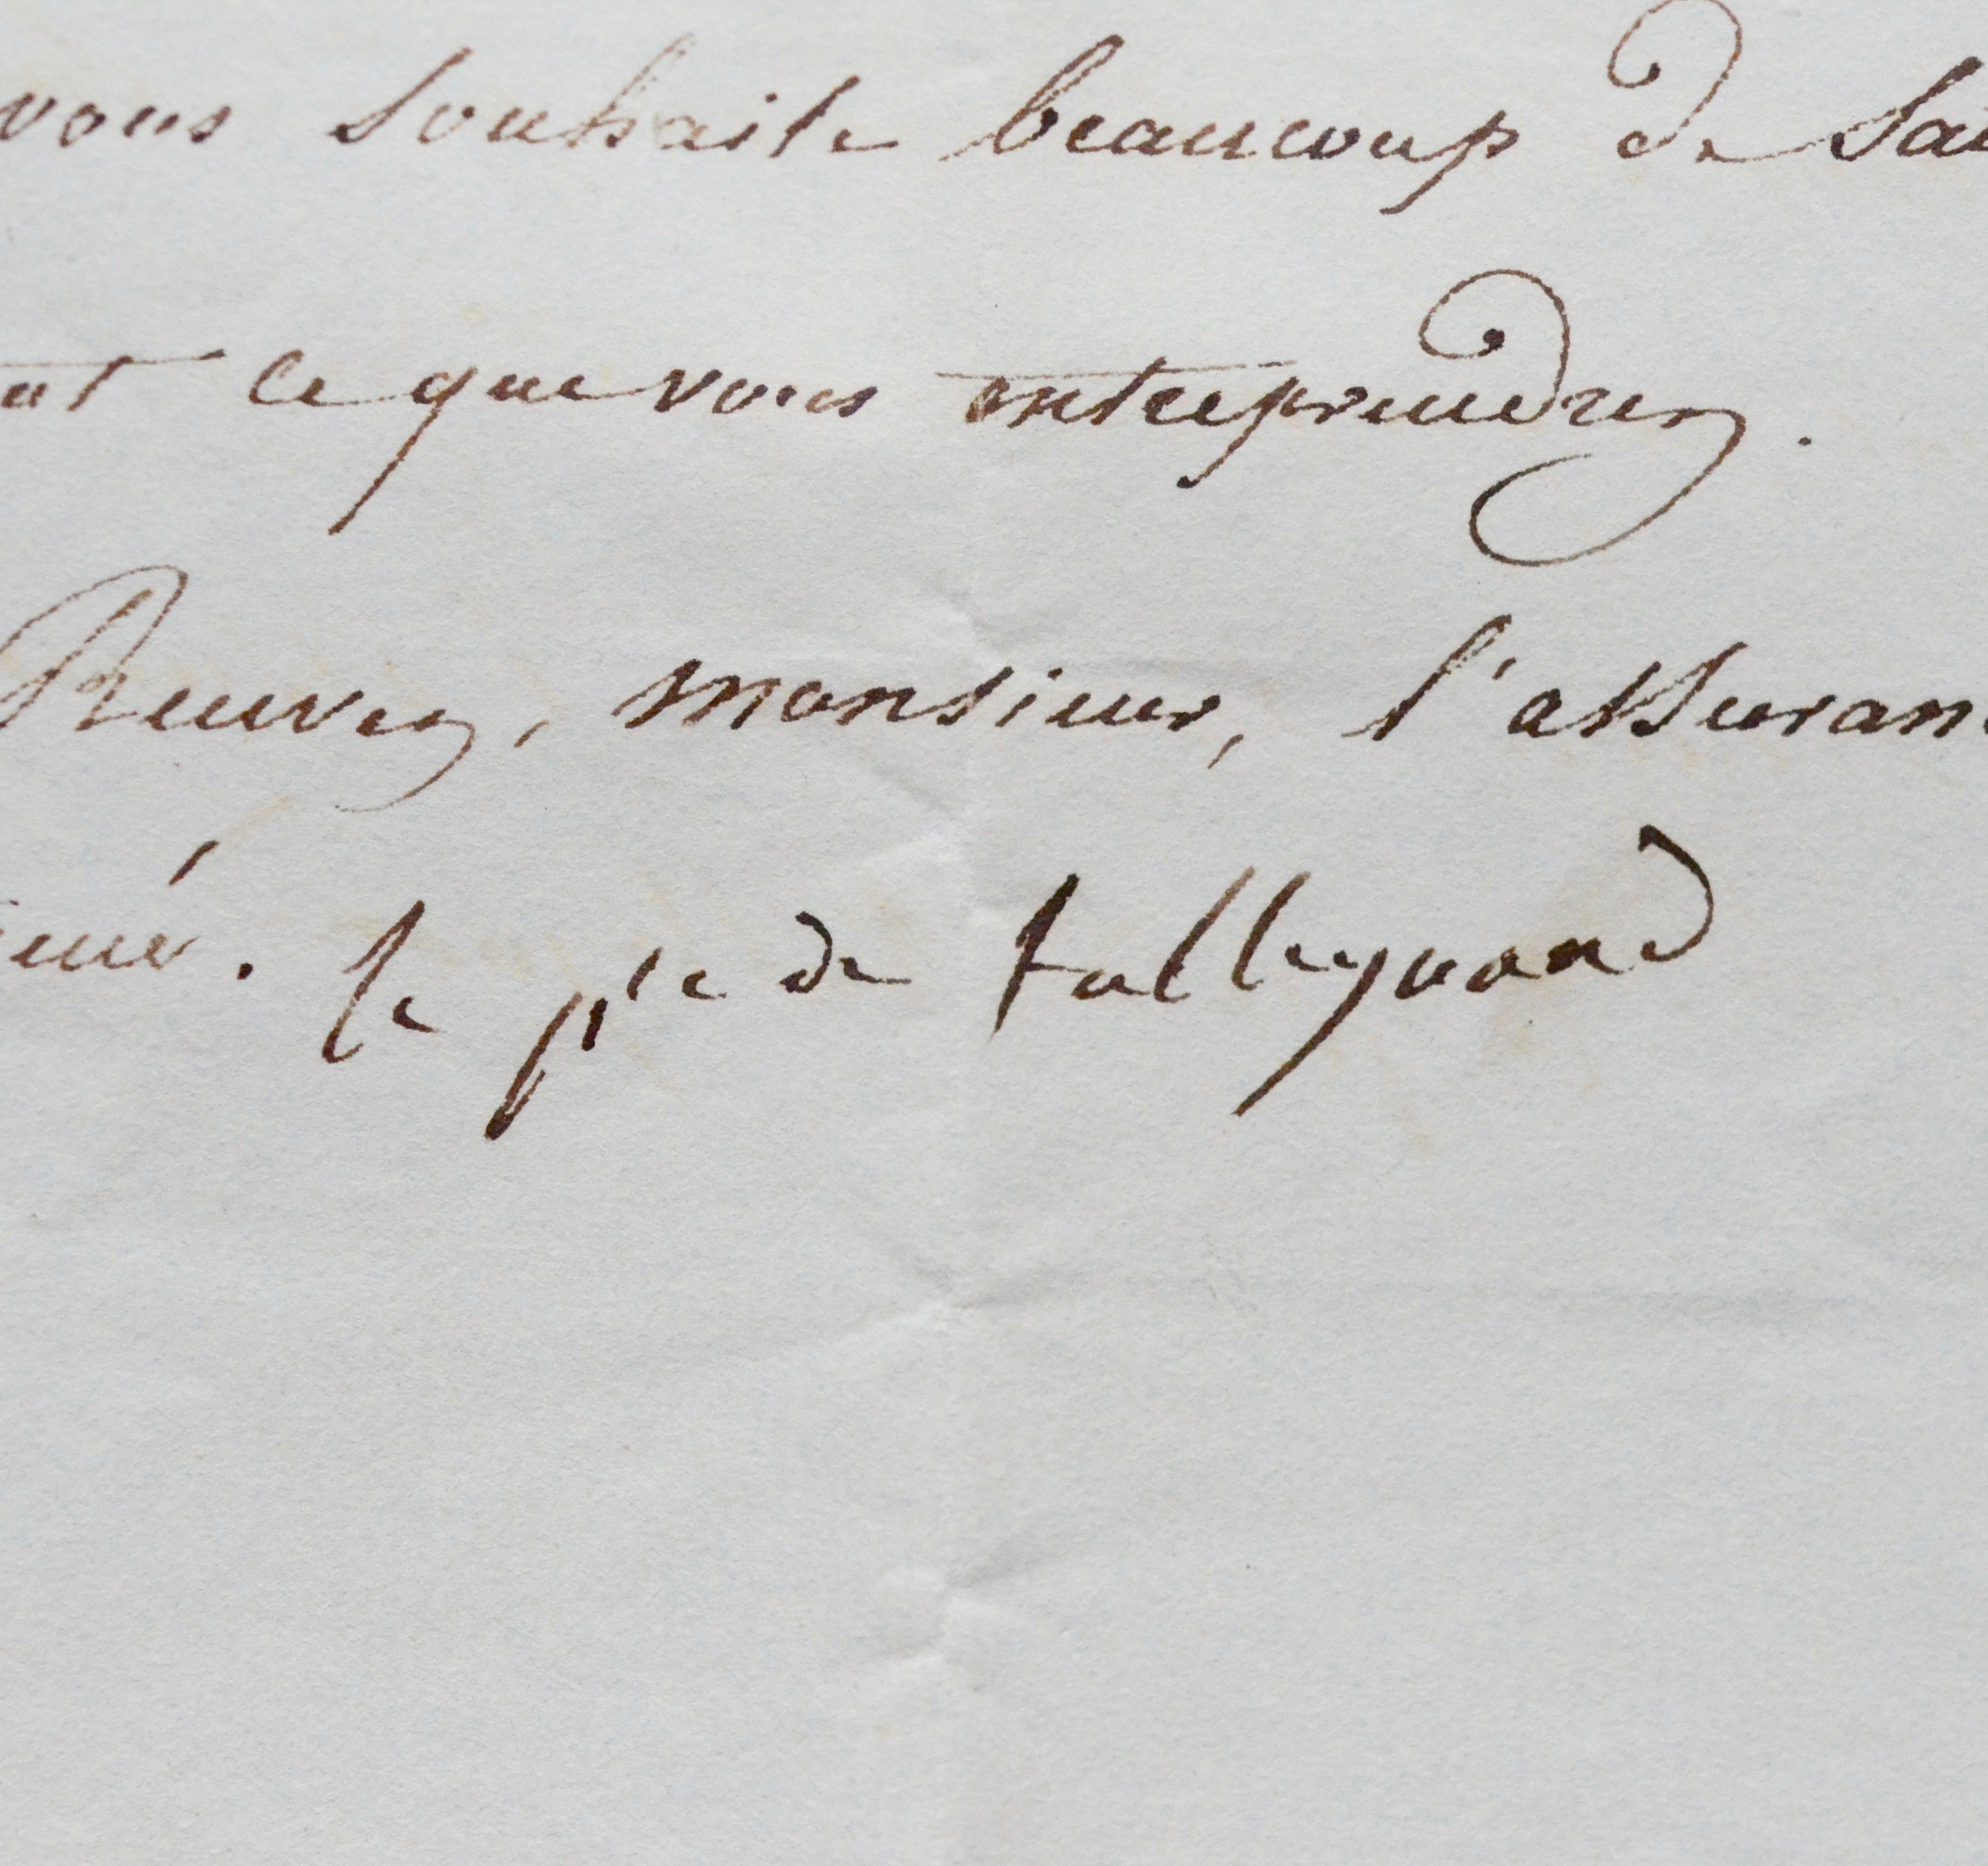 vous souhaite beaucoup de
ce que vous entreprendrez.
Recevez, monsieur, l'assuran
le p'ce de talleyrand